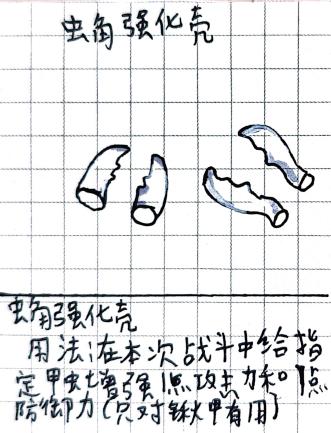 虫角强化壳
虫角强化壳
用法:在本次战斗中给指
定甲虫增强1点攻击力和1点
防御力(只对锹甲有用)